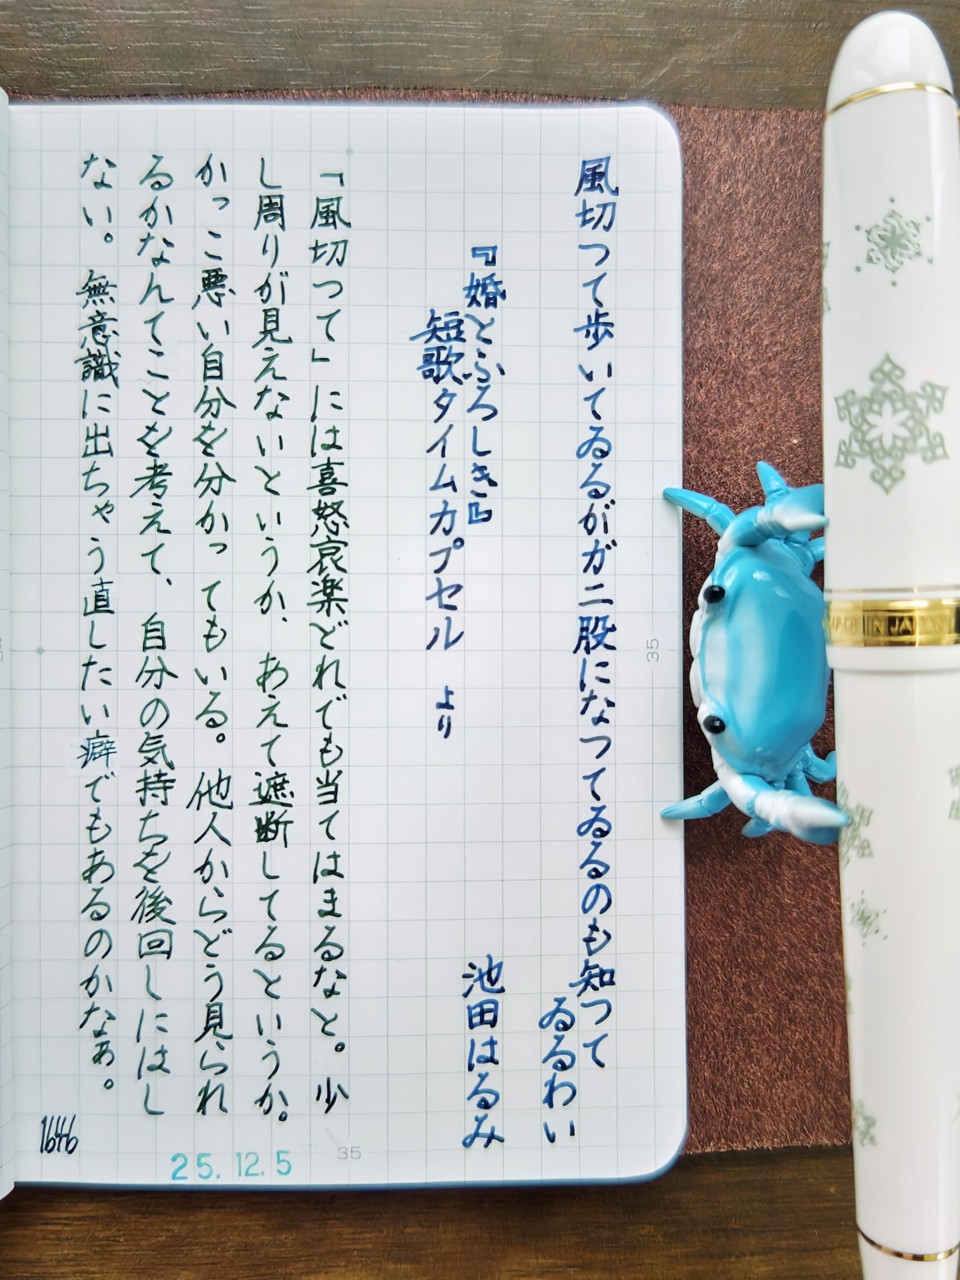 風切つて歩いてゐるがガニ股になつてゐるのも知つて
ゐるわい
『婚とふろしき』
短歌タイムカプセル より
池田はるみ
「風切って」には喜怒哀楽どれでも当てはまるなと。少
し周りが見えないというか、あえて遮断してるというか。
かっこ悪い自分を分かってもいる。他人からどう見られ
るかなんてことを考えて、自分の気持ちを後回しにはし
ない。無意識に出ちゃう直したい癖でもあるのかなぁ。
1646
25.12.5
35
35